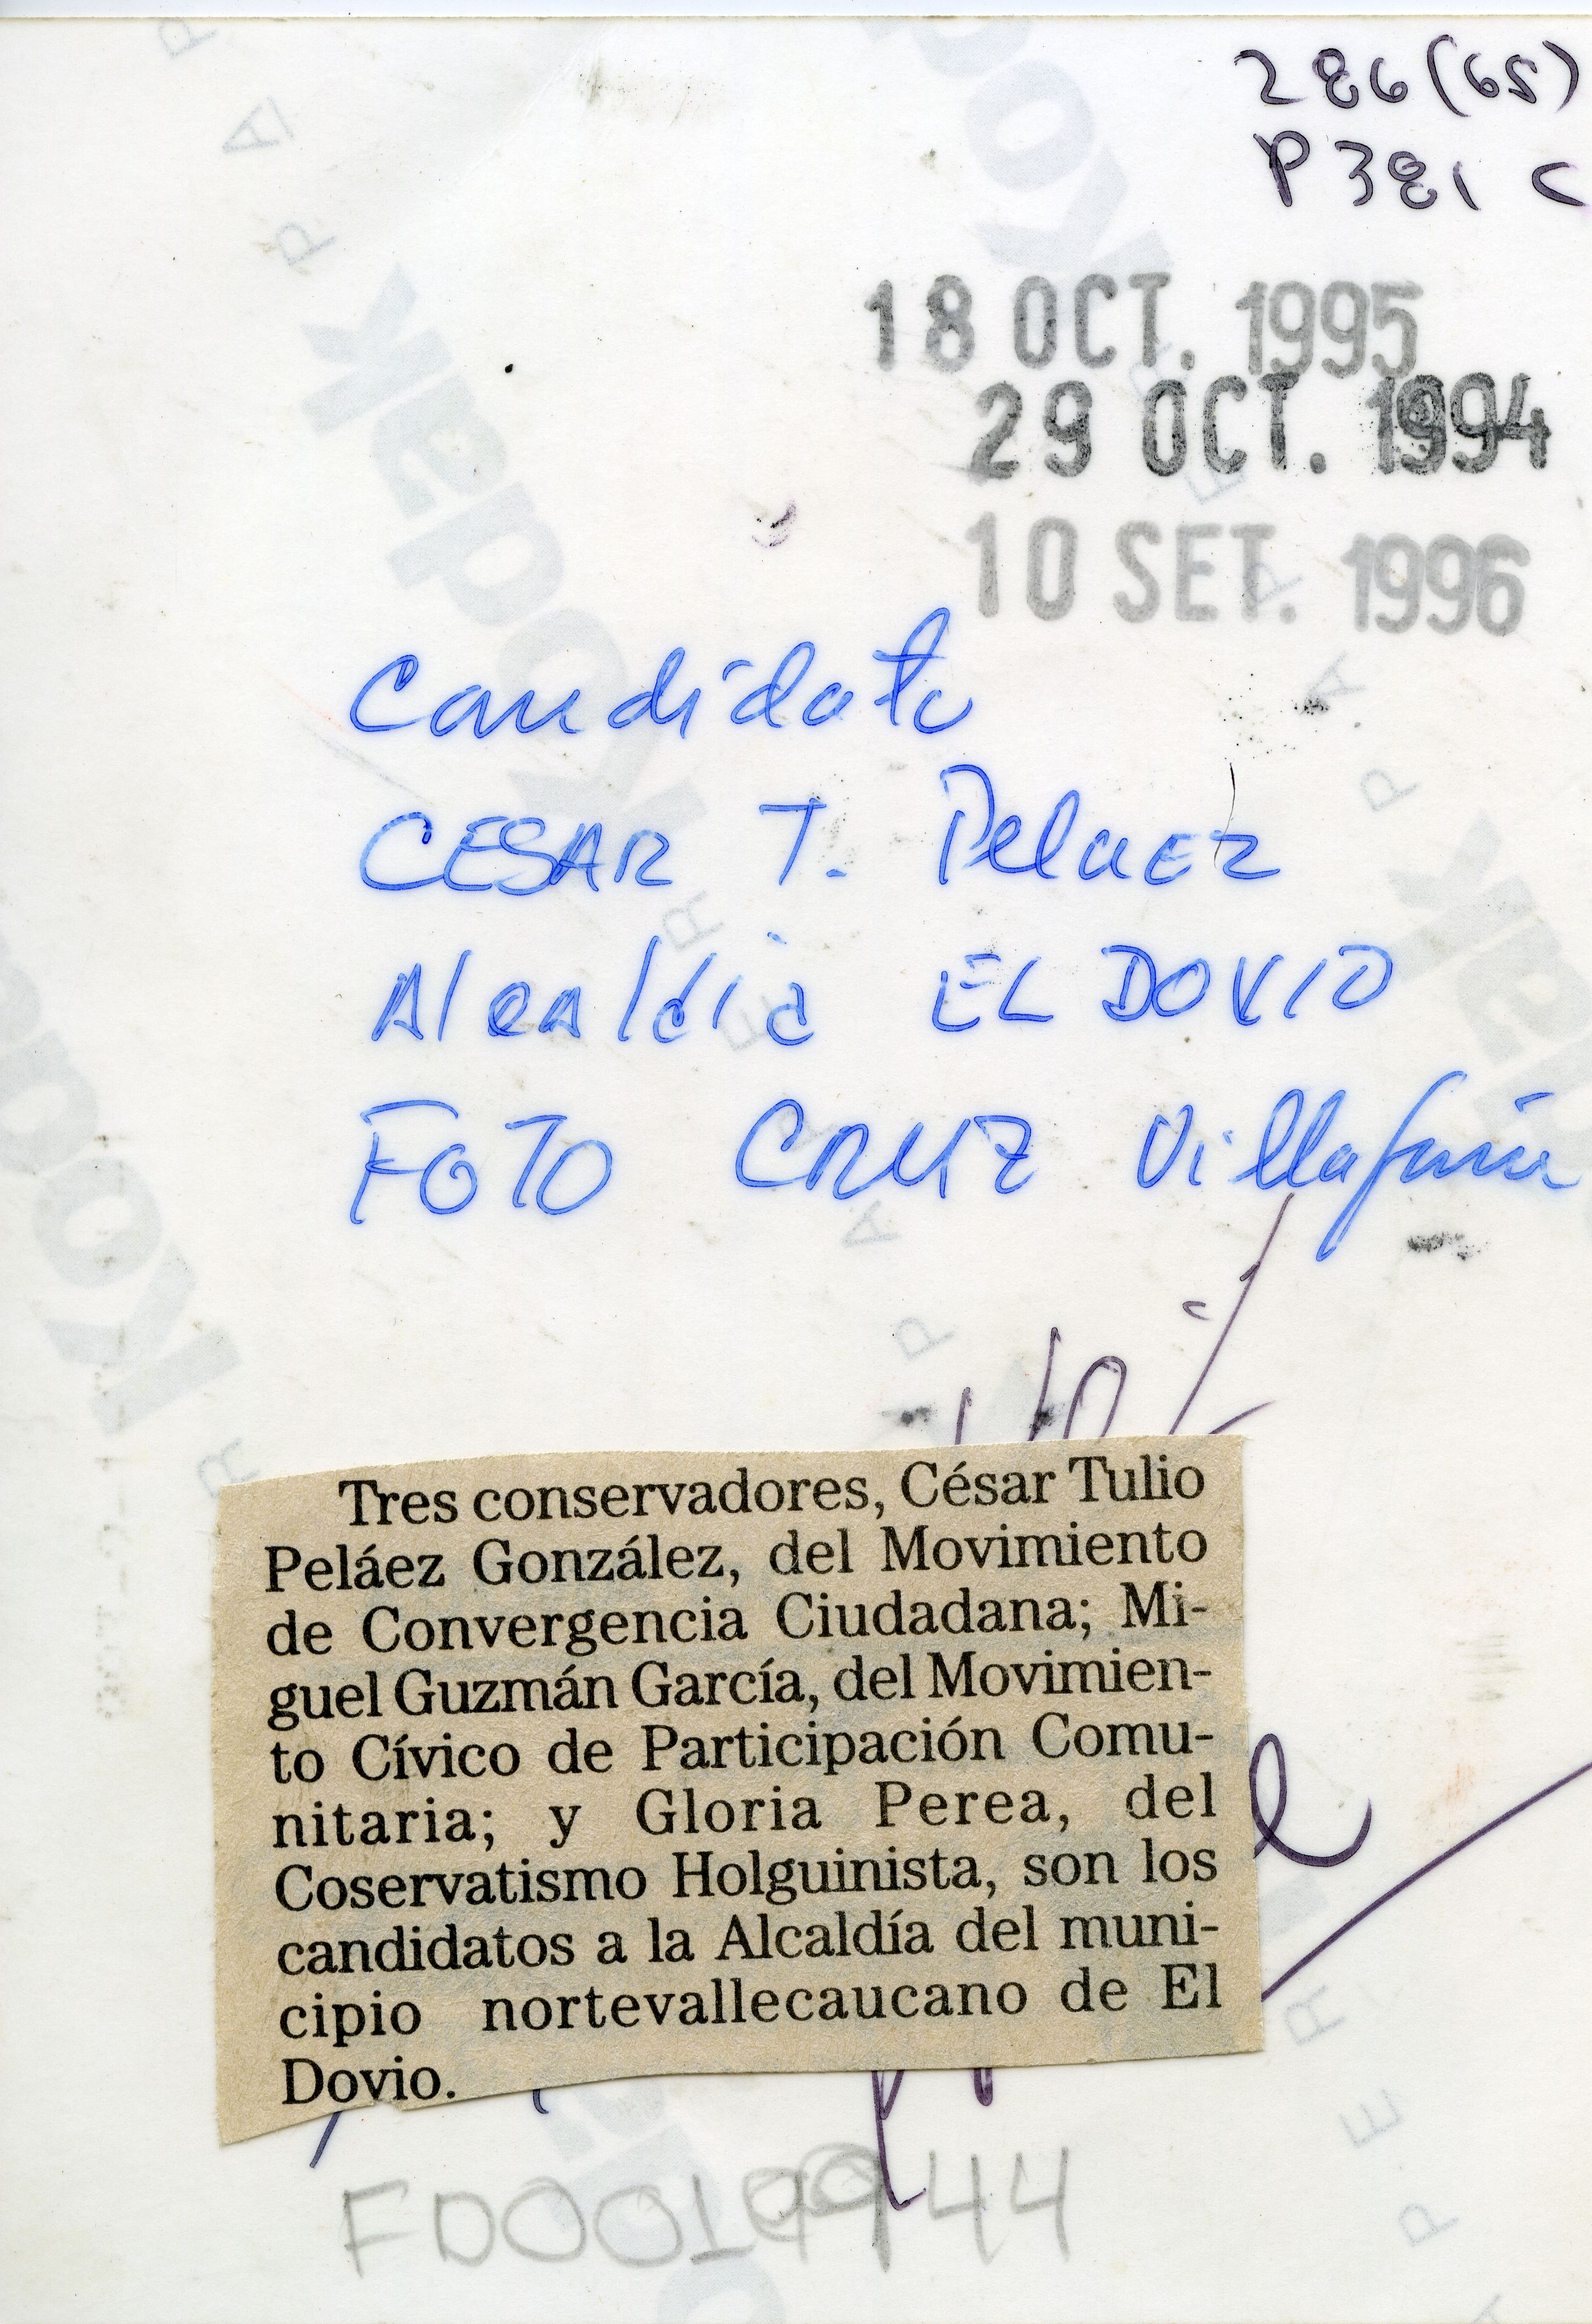 286(65)
P381 C
18 OCT. 1995
29 OCT. 1994
10 SET. 1996
Candidato
CESAR T. Pelaez
Alcaldia EL DOVIO
FOTO CRUZ Villafañe
Tres conservadores, César Tulio
Peláez González, del Movimiento
de Convergencia Ciudadana; Mi-
guel Guzmán García, del Movimien-
to Cívico de Participación Comu-
nitaria; y Gloria Perea, del
Coservatismo Holguinista, son los
candidatos a la Alcaldía del muni-
cipio nortevallecaucano de El
Dovio.